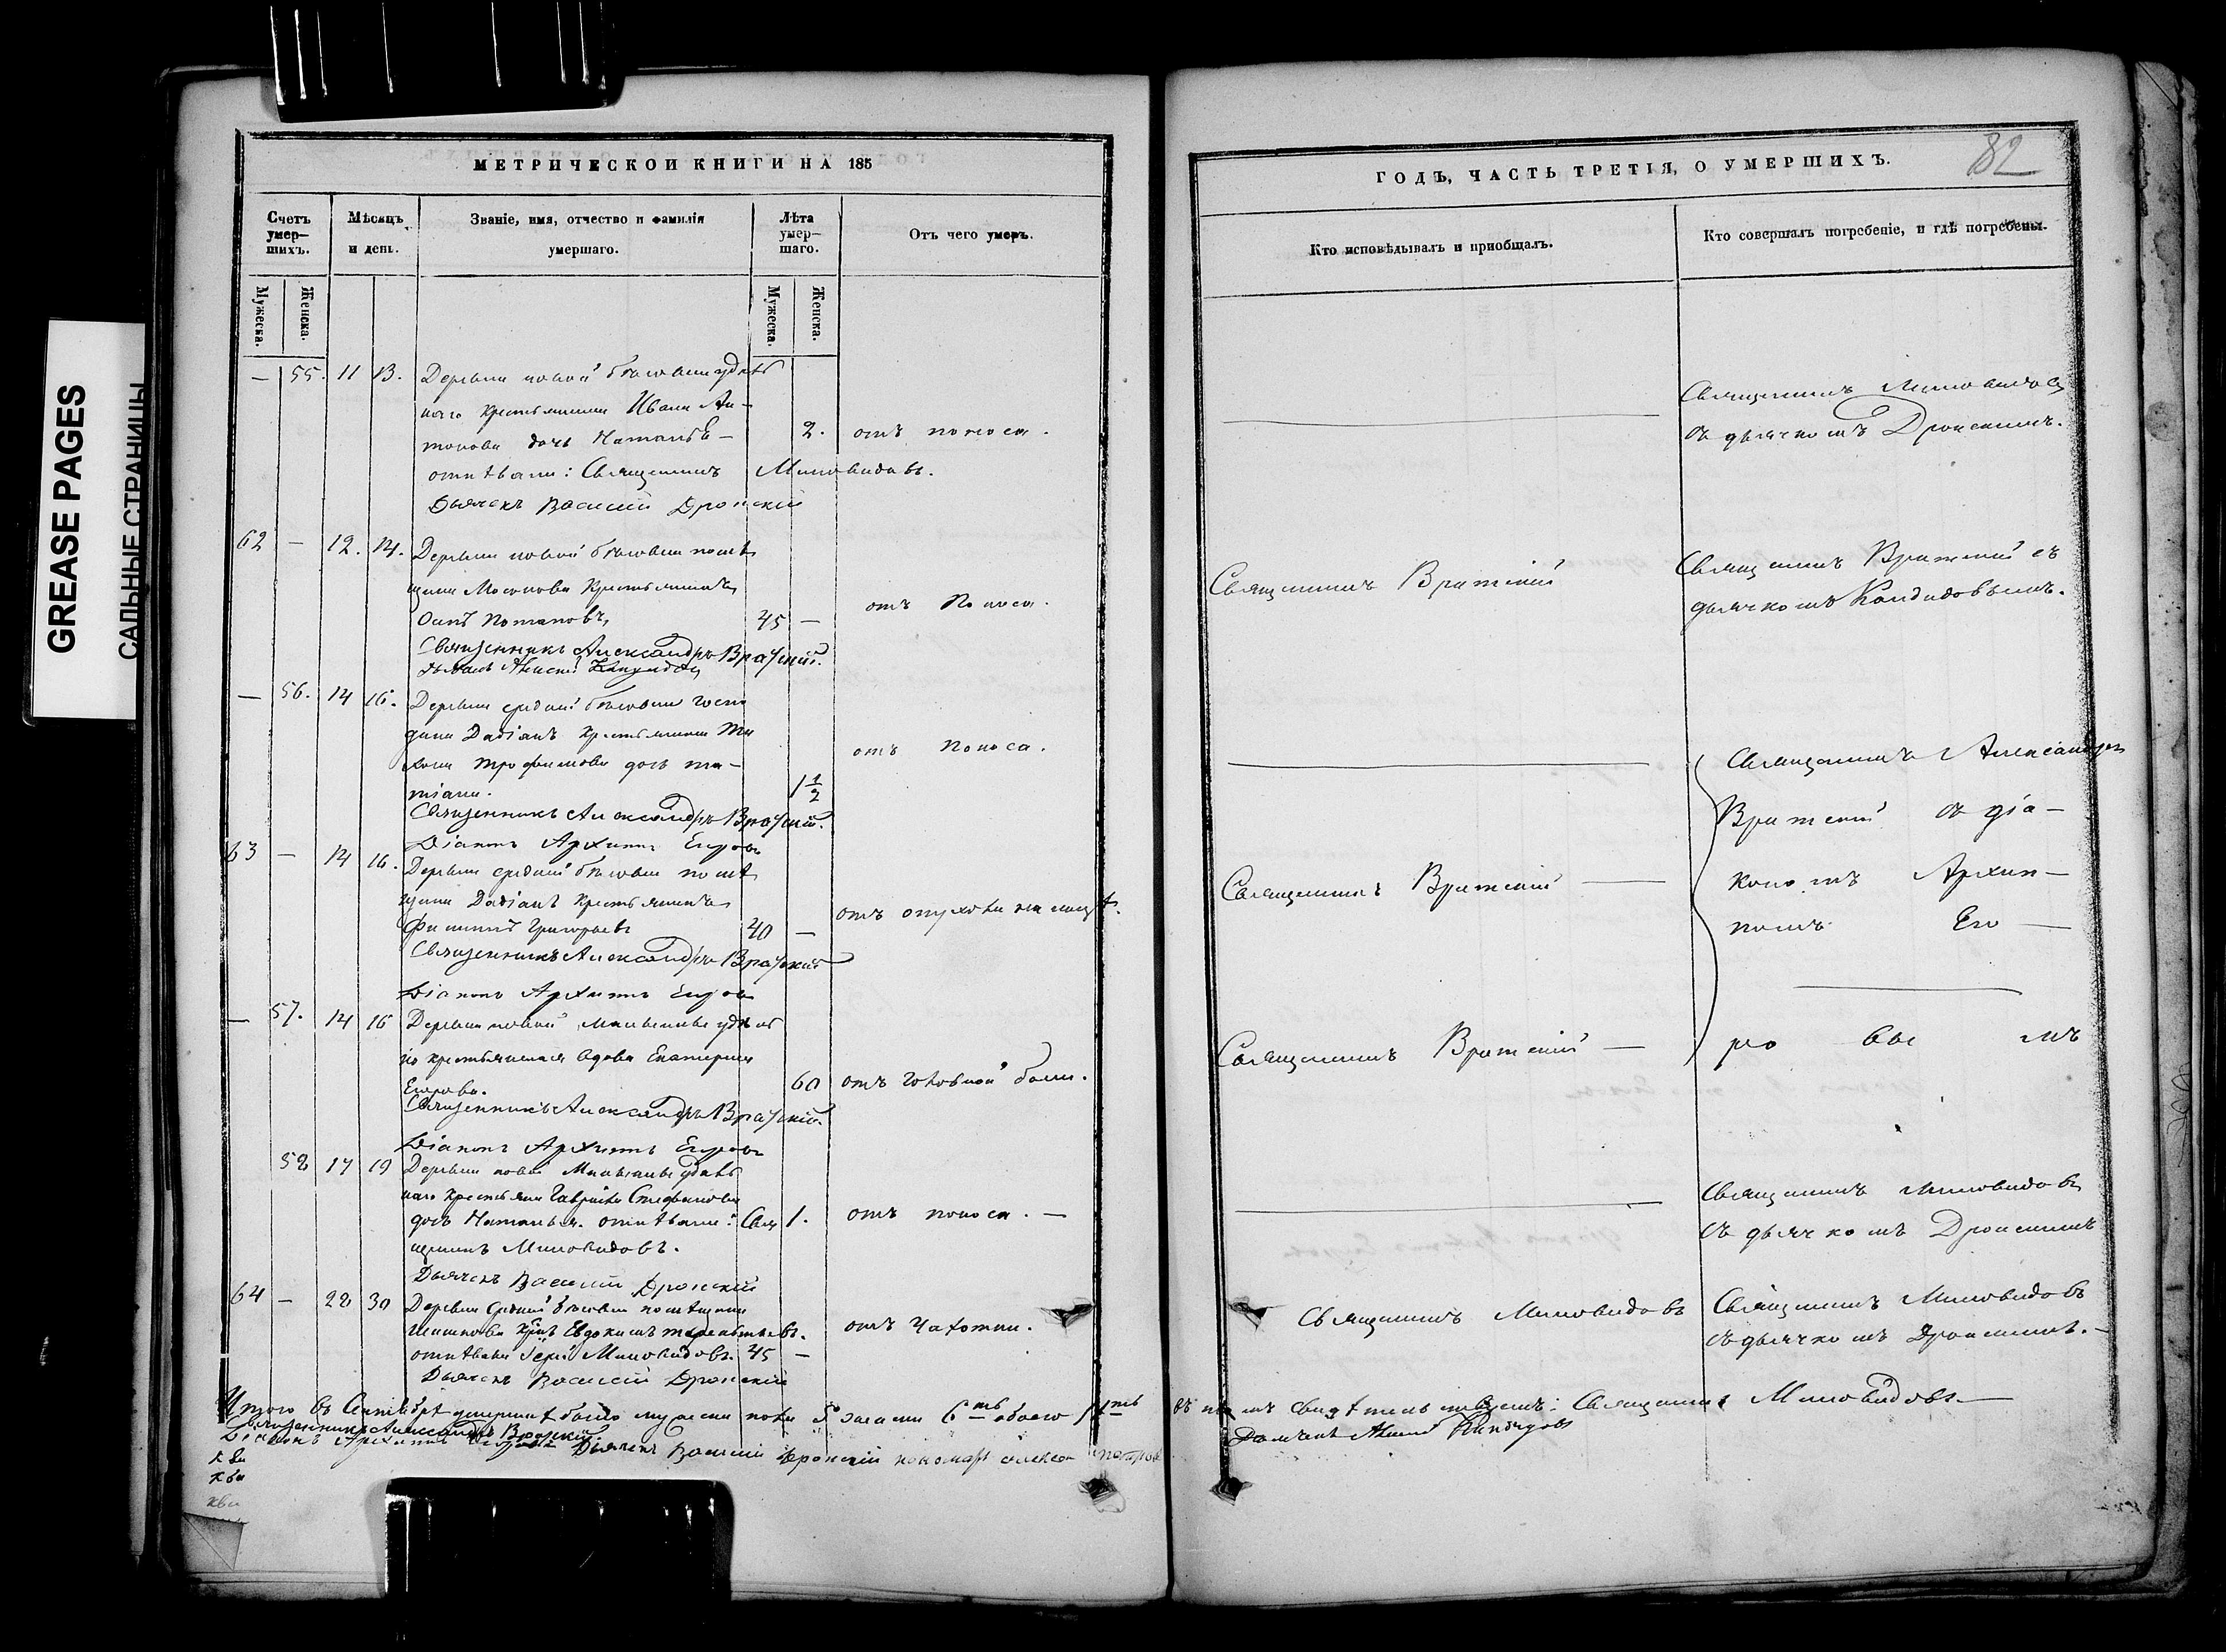 GREASE PAGES
САЛЬНЫЕ СТРАНИЦЫ
МЕТРИЧЕСКОЙ КНИГИ НА 185
Счетъ умер–шихъ.
Мѣсяцъ и день.
Званіе, имя, отчество и фамилія умершаго.
Лѣта умер–шаго.
Отъ чего умеръ.
Мужеска.
Женска.
Мужеска.
Женска.
— 55. 11 13. Деревни новой удѣль
наго крестьянина Ивана Ан–
тонова дочь Наталья — 2. отъ поноса.
отпѣвали: Священникъ Миловидовъ.
Дьячекъ Василій Дронскій
62 — 12. 14. Деревни новой помѣ
щика крестьянинъ
Осипъ Потаповъ, 45 — отъ поноса.
Священникъ Александръ Вратскій.
— 56. 14 16. Деревни средней госпо
дина Дадіанъ крестьянина Ти
хона Трофимова дочь Та–
тіана. 1 1/2 отъ поноса.
Священникъ Александръ Вратскій.
Діаконъ Архиппъ Егоровъ
63 — 14 16. Деревни средней помѣ
щика Дадіанъ крестьянинъ
Филиппъ Григорьевъ 40 — отъ опухоли на лицѣ.
Священникъ Александръ Вратскій
Діаконъ Архиппъ Егоровъ
— 57. 14 16 Деревни новой удѣльна
го крестьянина вдова Екатерина
Егорова. 60 отъ головной боли.
Священникъ Александръ Вратскій.
Діаконъ Архиппъ Егоровъ
58 17 19 Деревни новой удѣль
наго крестьянина Гаврила Стефанова
дочь Наталья. отпѣвали: Свя 1. отъ поноса. —
щенникъ Миловидовъ.
Дьячекъ Василій Дронскій
64 — 28 30 Деревни средней помѣщика
Евдокимъ отъ чахотки.
отпѣвали Іерей Миловидовъ. 45 —
Дьячекъ Василій Дронскій
Итого въ Сентябрѣ умершихъ было мужеска пола 5 женска 6ть обоего 11ть
Священникъ Александръ Вратскій.
Діаконъ Архиппъ Егоровъ Дьячекъ Василій Дронскій пономарь
ГОДЪ, ЧАСТЬ ТРЕТІЯ, О УМЕРШИХЪ.
82
Кто исповѣдывалъ и пріобщалъ.
Кто совершалъ погребеніе, и гдѣ погребены.
Священникъ Миловидовъ
съ дьячкомъ Дронскимъ.
Священникъ Вратскій
Священникъ Вратскій съ
дьячкомъ Кандидовымъ.
Священникъ Александръ
Вратскій съ діа–
Священникъ Вратскій —
кономъ Архип–
помъ Его —
Священникъ Вратскій —
ро вы мъ
Священникъ Миловидовъ
съ дьячкомъ Дронскимъ
Священникъ Миловидовъ
Священникъ Миловидовъ
съ дьячкомъ Дронскимъ. —
въ чемъ свидѣтельствуемъ: Священникъ Миловидовъ —